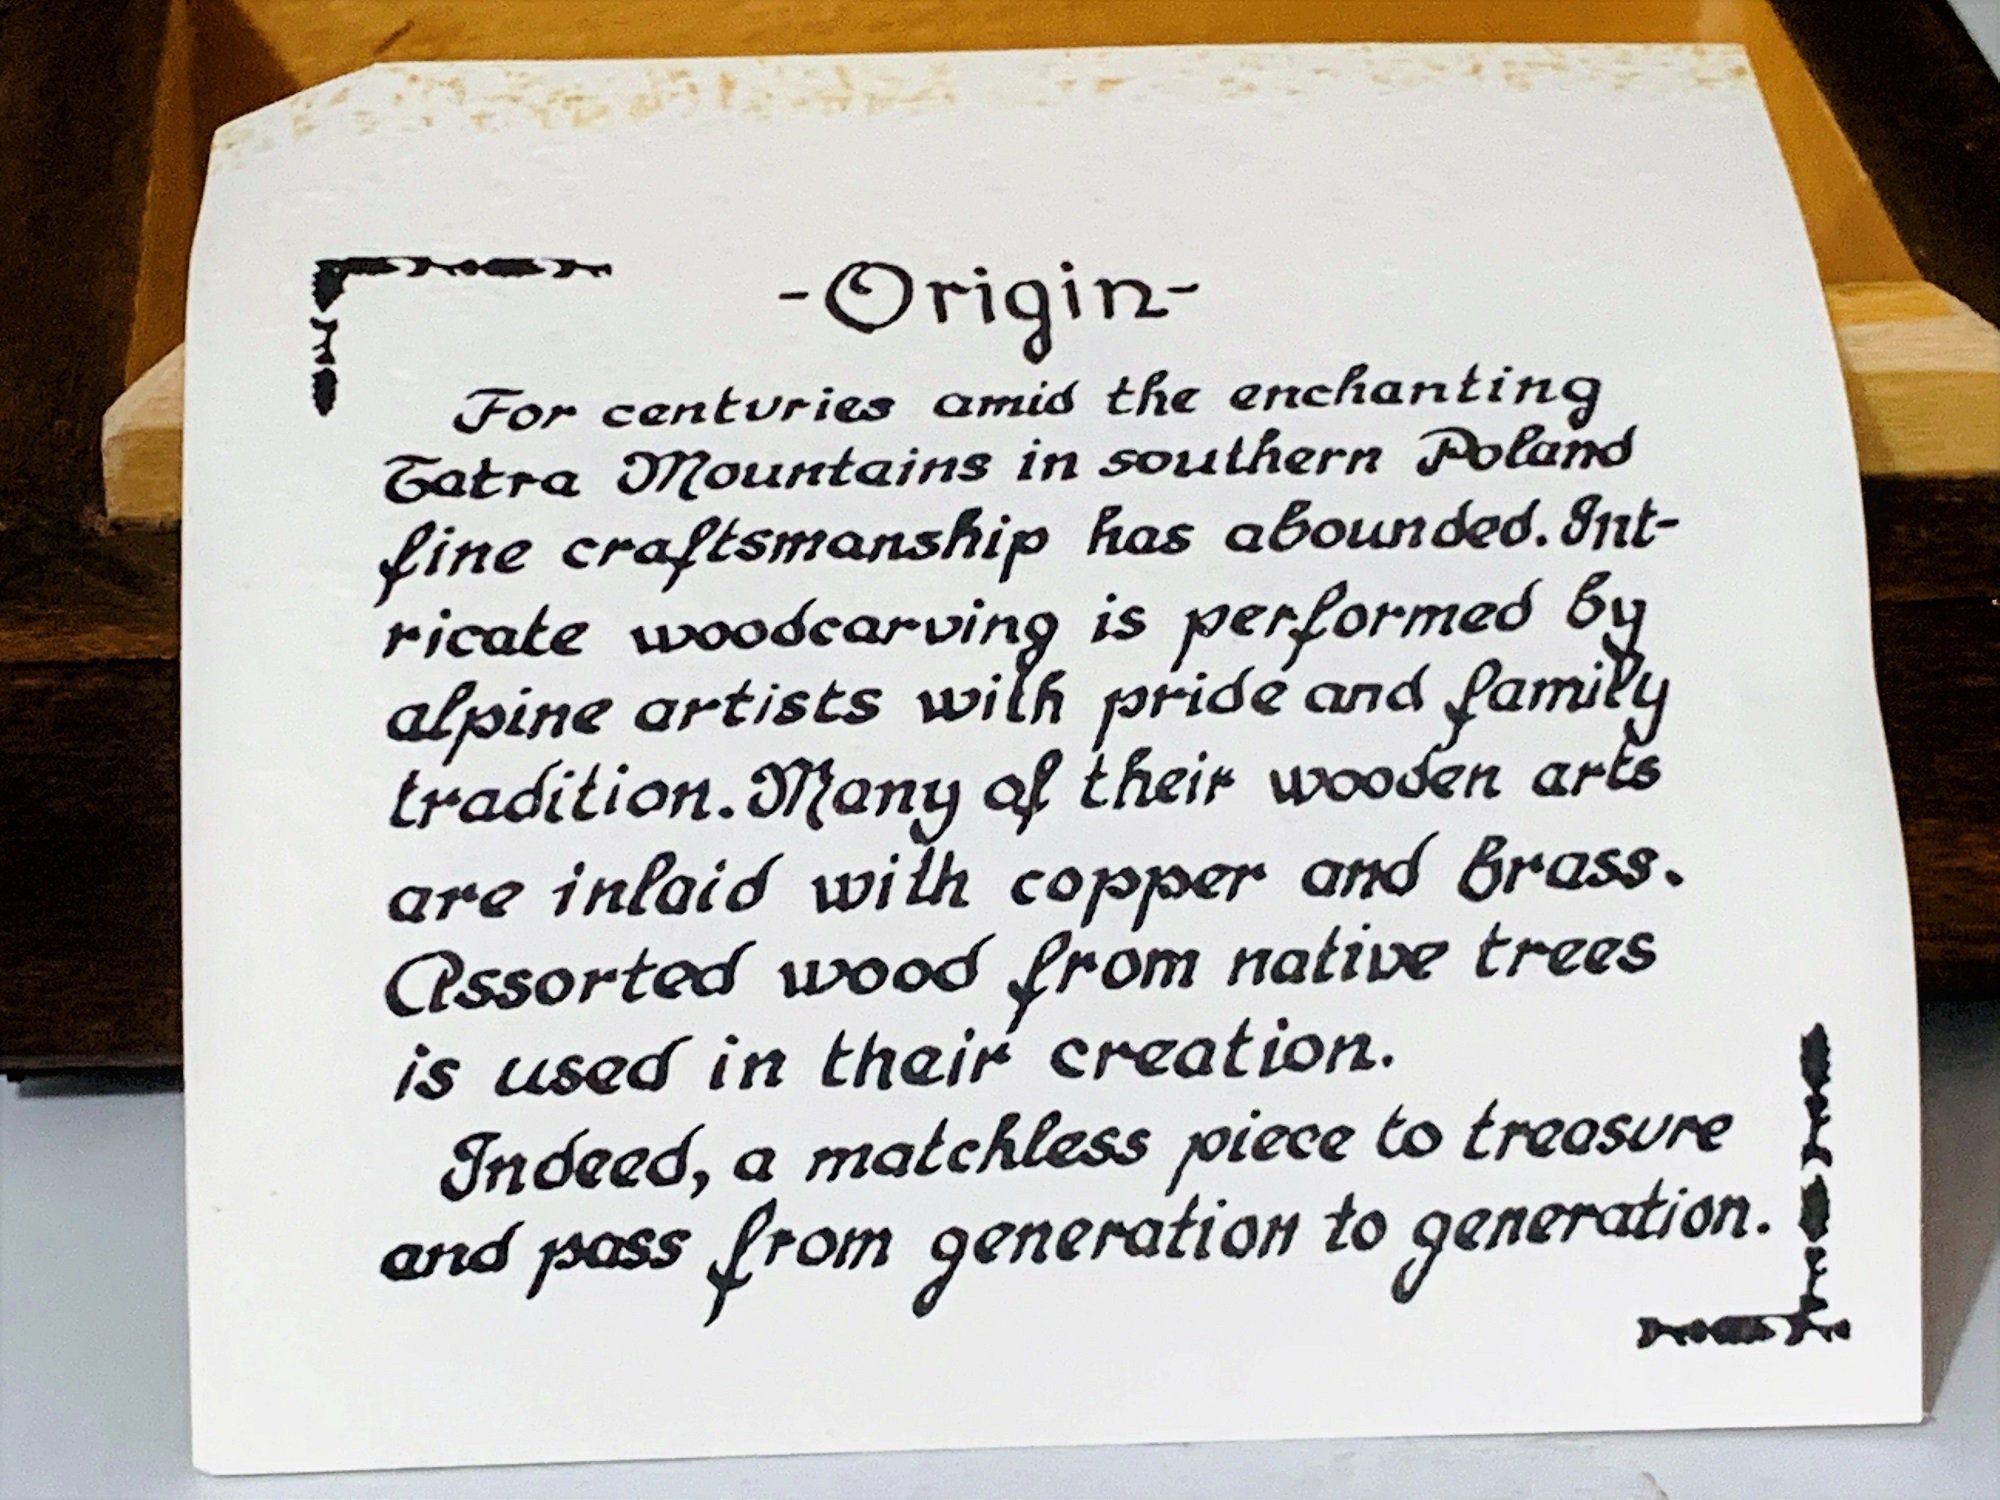 -Origin-
For centuries amid the enchanting
Tatra Mountains in southern Poland
fine craftsmanship has abounded. Int-
ricate woodcarving is performed by
alpine artists with pride and family
tradition. Many of their wooden arts
are inlaid with copper and brass.
Assorted wood from native trees
is used in their creation.
Indeed, a matchless piece to treasure
and pass from generation to generation.